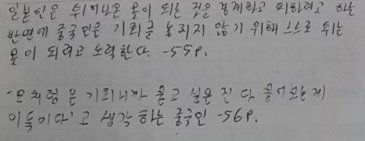 일본인은 튀어나온 못이 되는 것을 경계하고 피하려고 하는
반면에 중국인은 기회를 놓치지 않기 위해 스스로 튀는
못이 되려고 노력한다. -55p.
-모처럼온 기회니까 묻고 싶은 건 다 물어보는게
이득이다'고 생각하는 중국인 -56p.